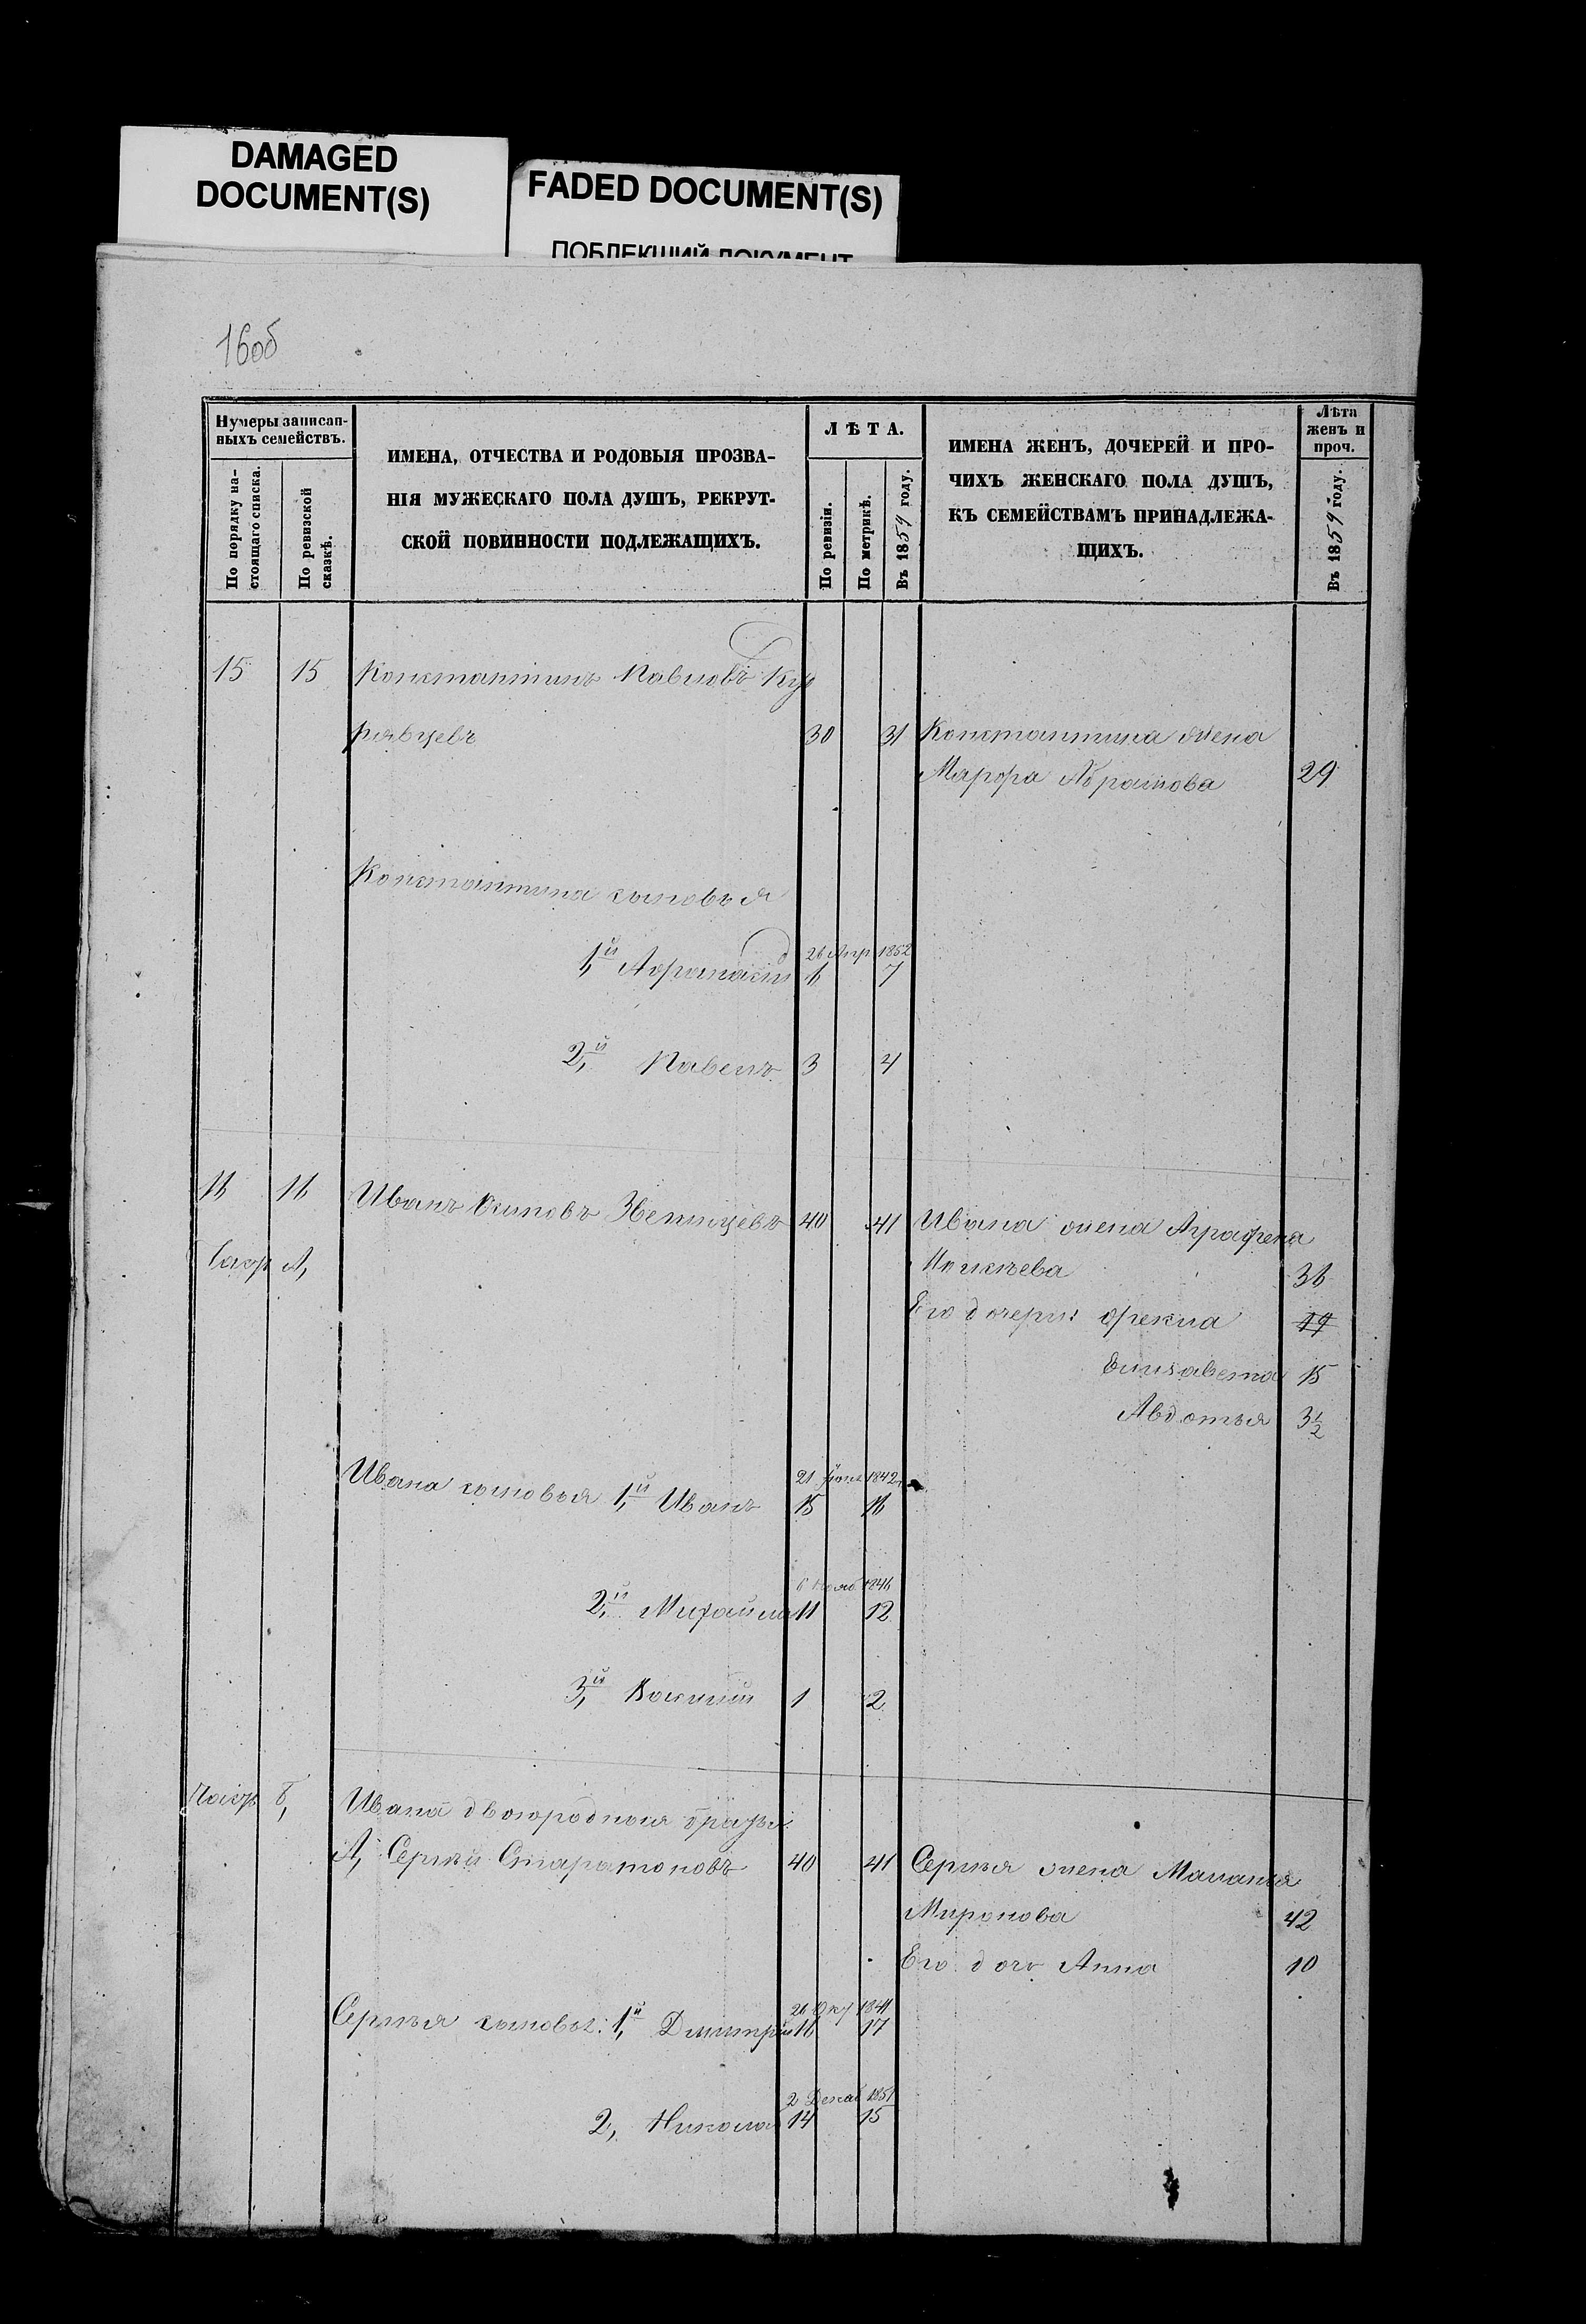 DAMAGED
DOCUMENT(S)
FADED DOCUMENT(S)
ПОБЛЕКШИЙ ДОКУМЕНТ
16об
Нумеры записан-
ныхъ семействъ.
По порядку на-
стоящаго списка.
По ревизской
сказкѣ.
ИМЕНА, ОТЧЕСТВА И РОДОВЫЯ ПРОЗВА-
НІЯ МУЖЕСКАГО ПОЛА ДУШЪ, РЕКРУТ-
СКОЙ ПОВИННОСТИ ПОДЛЕЖАЩИХЪ.
ЛѢТА.
По ревизіи.
По метрикѣ.
Въ 1859 году.
ИМЕНА ЖЕНЪ, ДОЧЕРЕЙ И ПРО-
ЧИХЪ ЖЕНСКАГО ПОЛА ДУШЪ,
КЪ СЕМЕЙСТВАМЪ ПРИНАДЛЕЖА-
ЩИХЪ.
Лѣта
женъ и
проч.
Въ 1859 году.
15 15 Константинъ Павловъ Куд
рявцевъ 30 31 Константина жена
Марфа Абрамова 29
Константина сыновья
26 Апр 1852
1й Афанасій 6 7
2й Павелъ 3 4
16 16 Иванъ Осиповъ 40 41 Ивана жена Аграфена
А, 36
Его дочери: Фекла 17
Елизавета 15
Авдотья 3 1/2
21 1842
Ивана сыновья 1й Иванъ 15 16
6 Нояб 1846
2й Михайла 11 12
3й 1 2
Б, Ивана двоюродныя братья
А, Сергѣй 40 41 Сергѣя жена Маланья
Миронова 42
Его дочь Анна 10
26 Окт 1841
Сергѣя сыновья: 1й Дмитрій 16 17
2 Декаб 1851
2, Николай 14 15